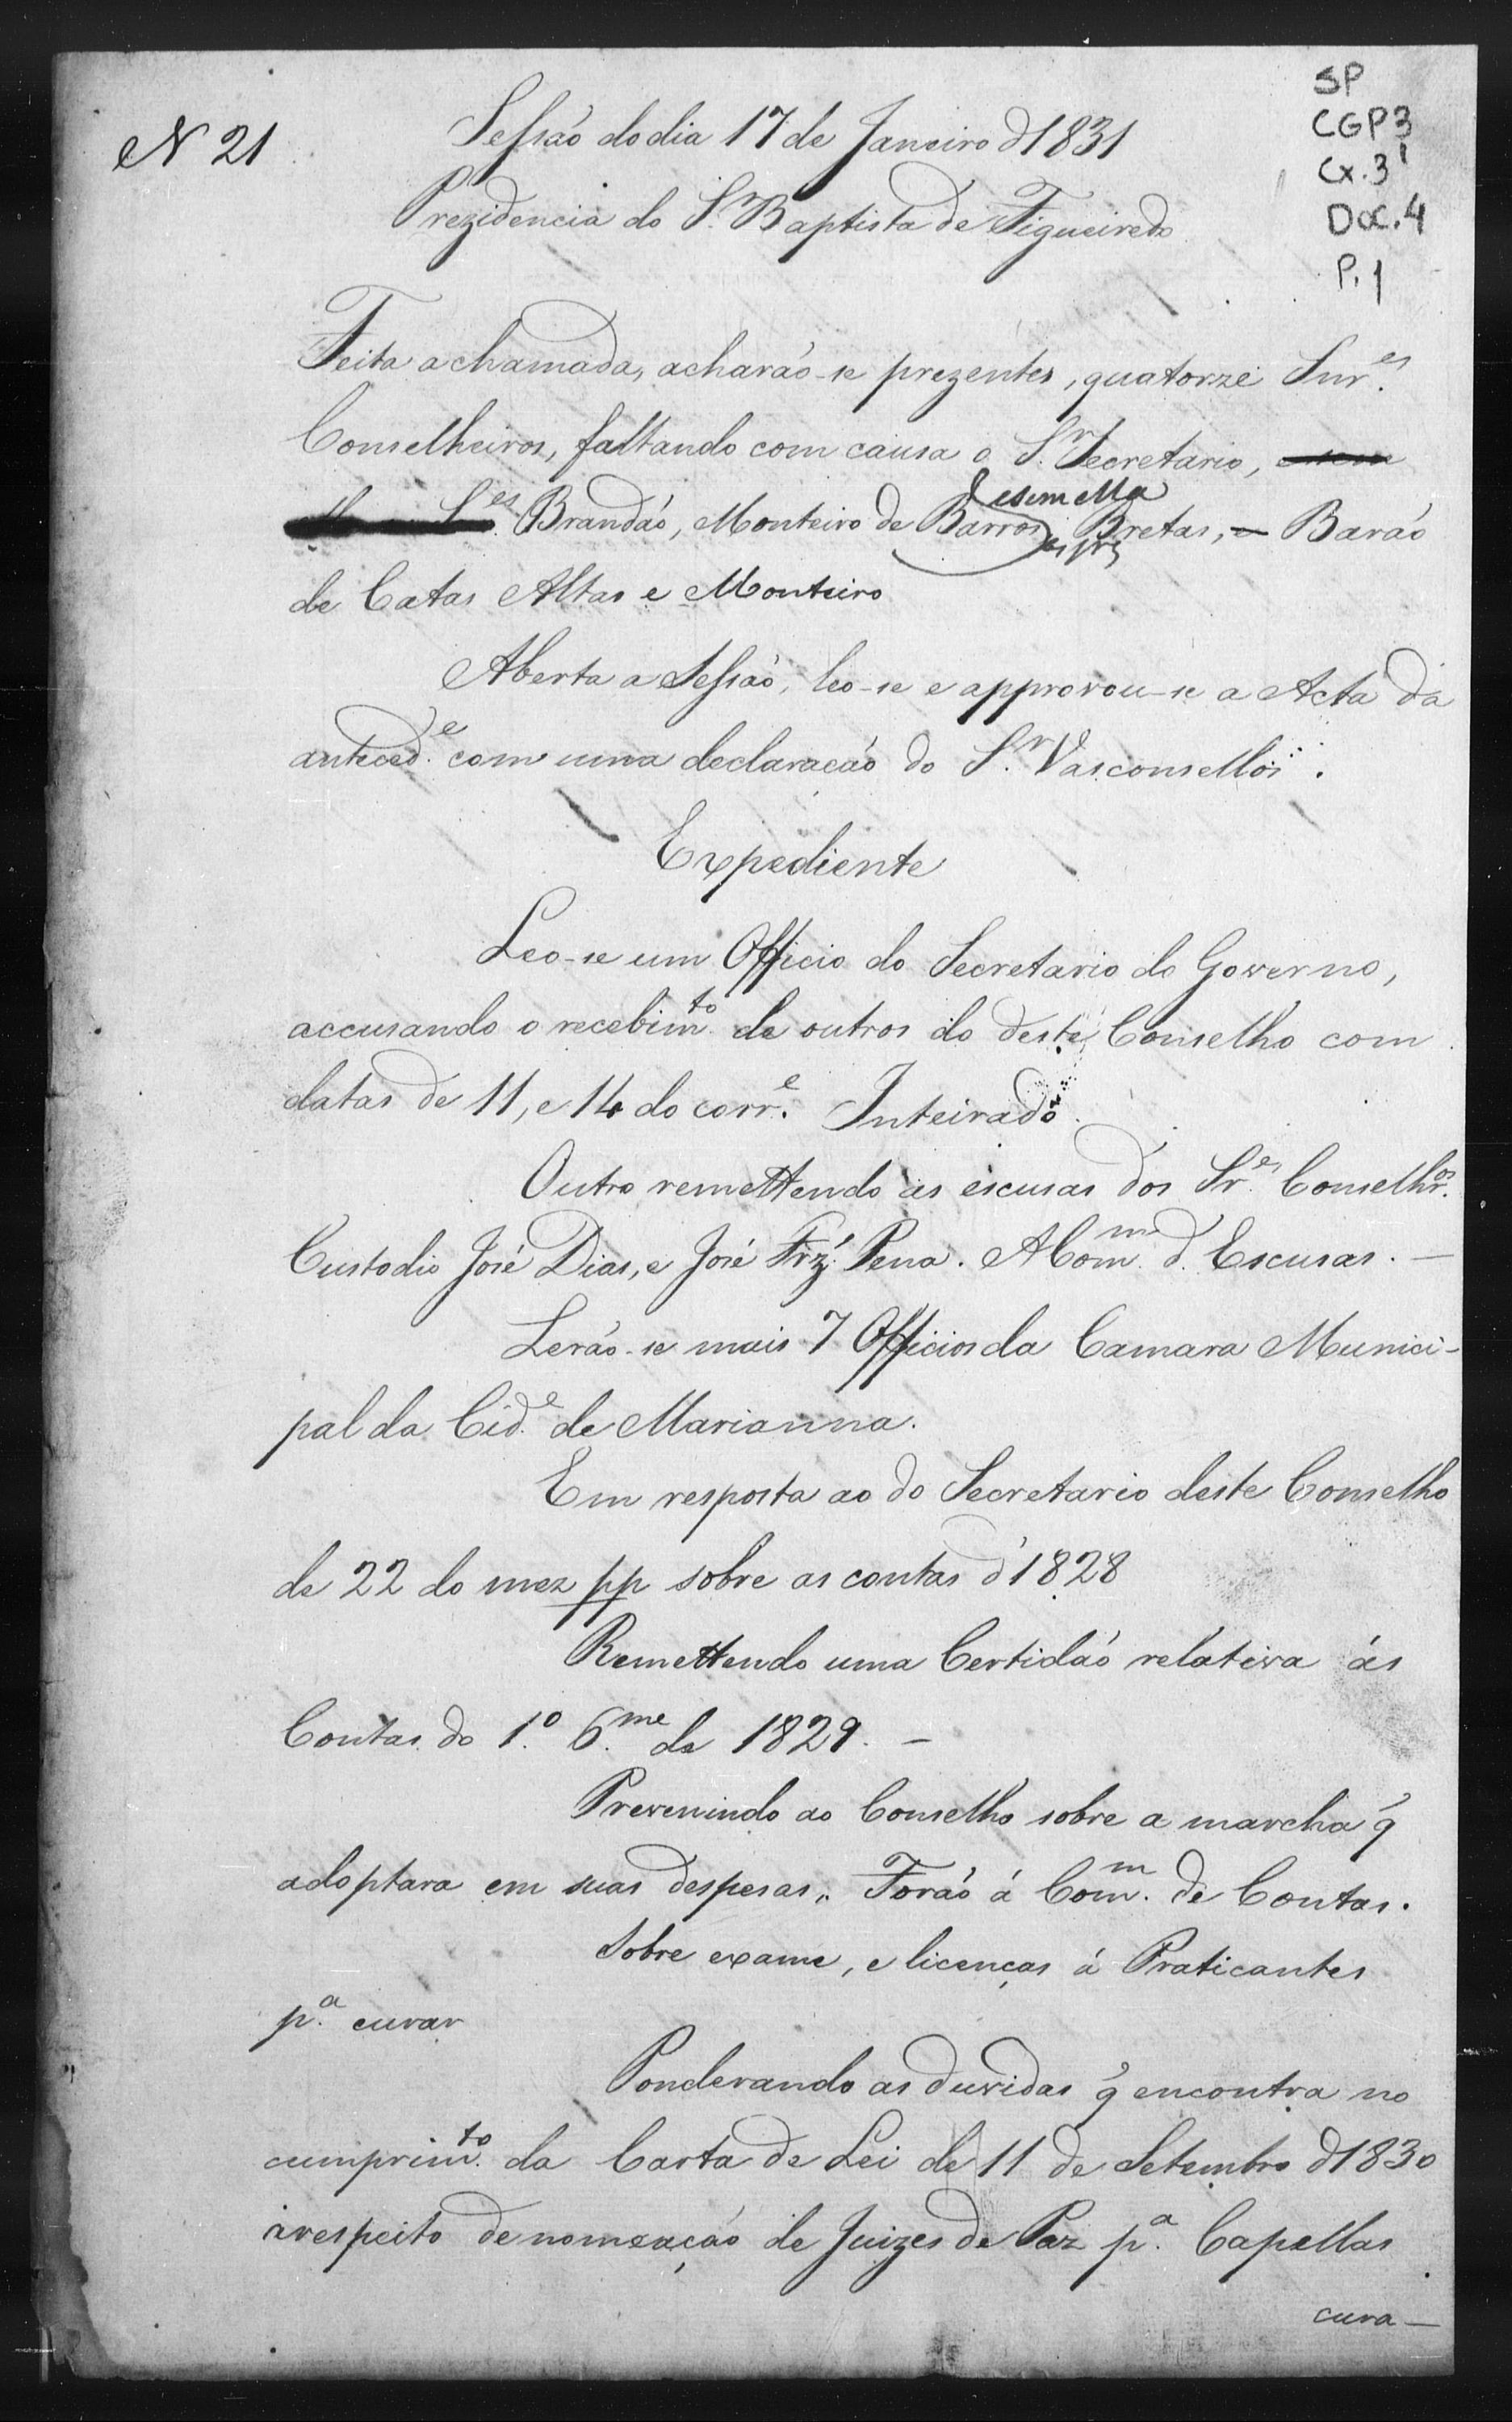 SP
CGP3
Cx.3
Doc.4
P.1
N 21
Sessão do dia 17 de Janeiro d'1831
Prezidencia do Sr. Baptista de Figueiredo
Feita a chamada, acharão-se prezentes, quatorze Snr.es
Conselheiros, faltando com causa o Sr. Secretario,
Brandão, Monteiro de Barros, e sem ella Bretas, Barão
de Catas Altas e Monteiro
Aberta a Sessão, leo-se e approvou-se a Acta da
anteced.e com uma declaração do Sr. Vasconsellos.
Expediente
Leo-se um Officio do Secretario do Governo,
accusando o recebim.to de outros do deste Conselho com
datas de 11, e 14 do corr.e Inteirado.
Outro remettendo as escusas dos Sr.es Conselhr.os
Custodio José Dias, e José Frz' Pena. A Com.m d. Escusas. —
Lerão-se mais 7 Officios da Camara Munici-
pal da Cid.e de Marianna.
Em resposta ao do Secretario deste Conselho
de 22 do mez pp sobre as contas d'1828
Remettendo uma Certidão relativa ás
Contas do 1.º 6.me de 1829. —
Prevenindo ao Conselho sobre a marcha q'
adoptara em suas despesas,, Forão á Com.m de Contas.
Sobre exame, e licenças á Praticantes
p.a curar
Ponderando as duvidas q' encontra no
cumprim.to da Carta de Lei de 11 de Setembro d'1830
arespeito de nomeação de Juizes de Paz p.a Capellas
cura—